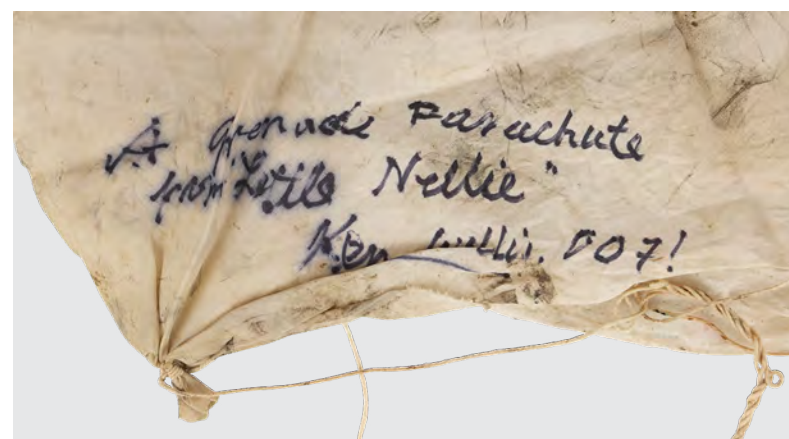 A grenade Parachute
from "Little Nellie"
Ken Wallis. 007!